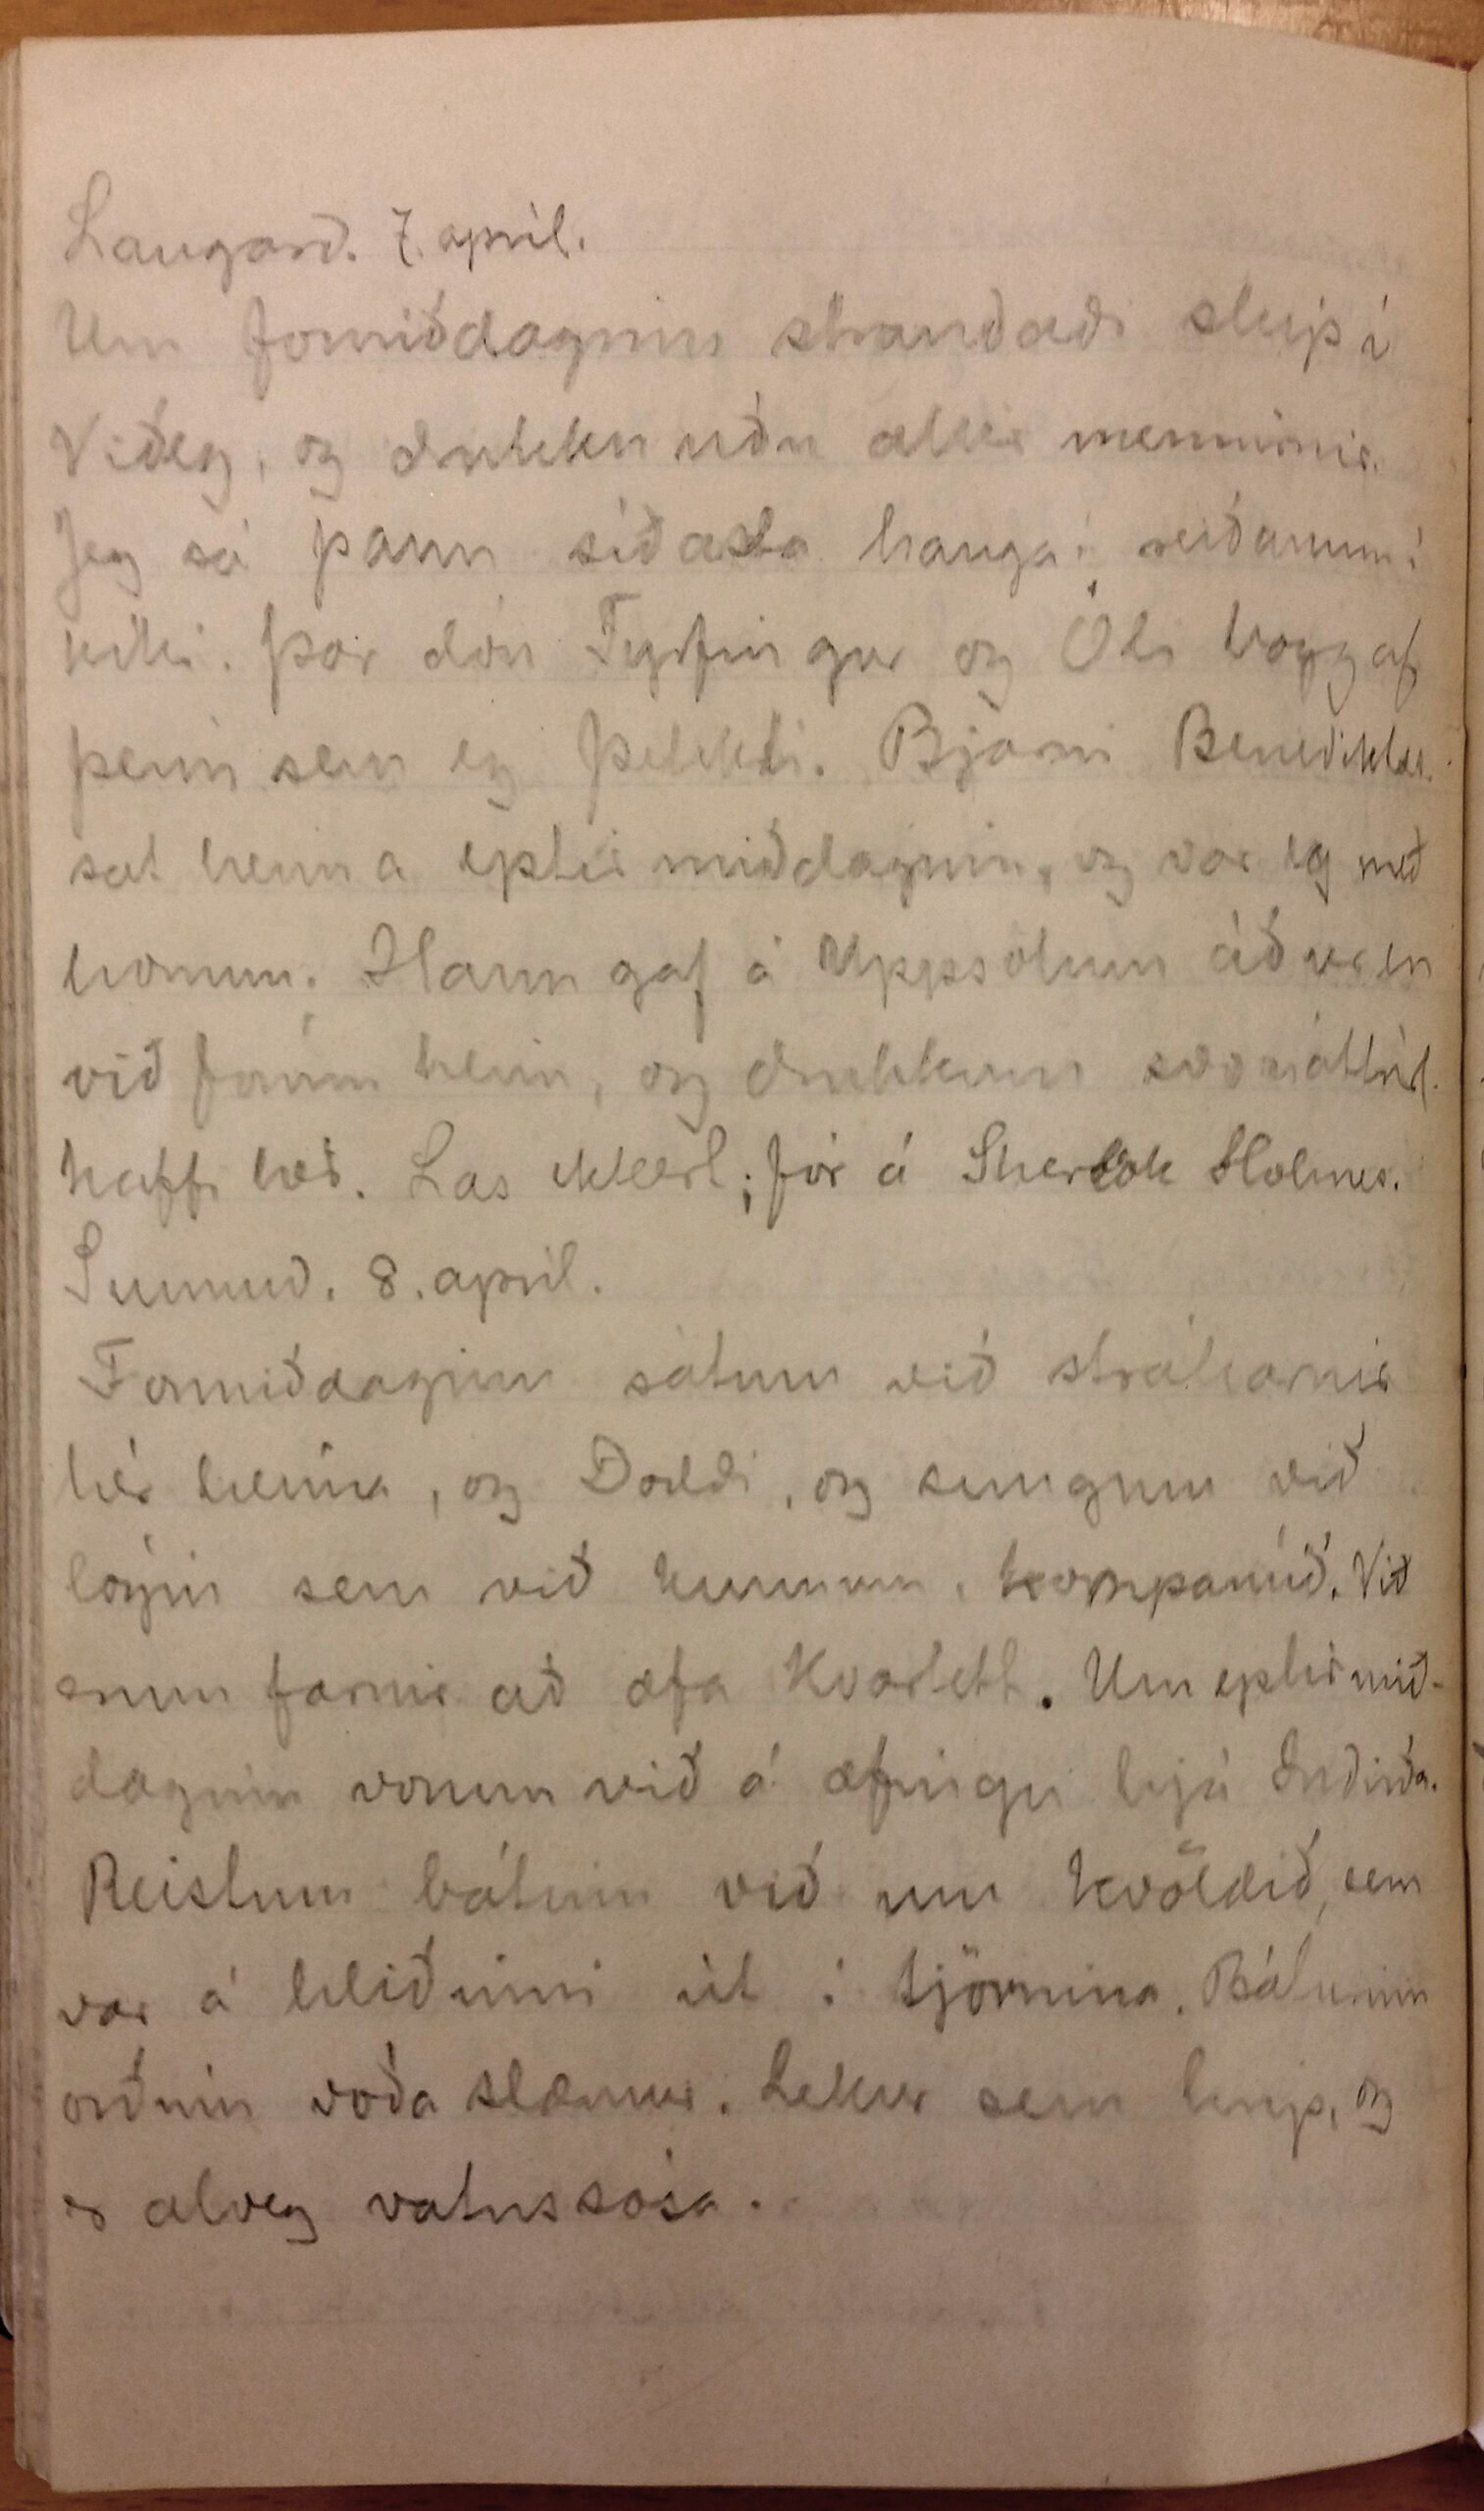 Laugard. 7. april.
Um formiðdaginn strandaði skip í
Viðey, og drukknuðu allir mennirnir.
Jeg sá þann síðasta hanga í reiðanum í
kíki. Þar dóu Tyrfingur og Óli Vogg af
þeim sem eg þekkti. Bjarni Benediktss.
sat heima eptirmiðdaginn, og var eg með
honum. Hann gaf á Uppsölum áður en
við fórum heim, og drukkum
kaffi Las ekkert; fór á Sherlok Holmes.
Sunnud. 8. april.
Formiðdaginn sátum við strákarnir
hér heima, og Doddi, og sungum við
lögin sem við kunnum, kompaníið. Við
erum farnir að æfa Kvartett. Um eptirmið-
daginn vorum við á æfingu hjá Indriða.
Reistum bátinn við um kvöldið, sem
var á hliðinni út í tjörnina. Báturinn
orðinn voða slæmur. Lekur sem hrip, og
er alveg vatnssósa.